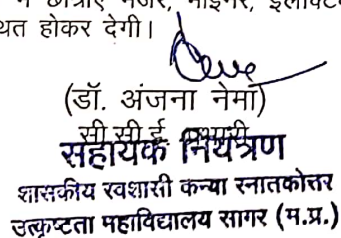 में छात्राएं मेजर, माइनर, इलेक्टि
होकर देगी।
(डॉ. अंजना नेमा)
सी.सी.ई. प्रभारी
सहायक नियंत्रण
शासकीय स्वशासी कन्या स्नातकोत्तर
उत्कृष्टता महाविद्यालय सागर (म.प्र.)